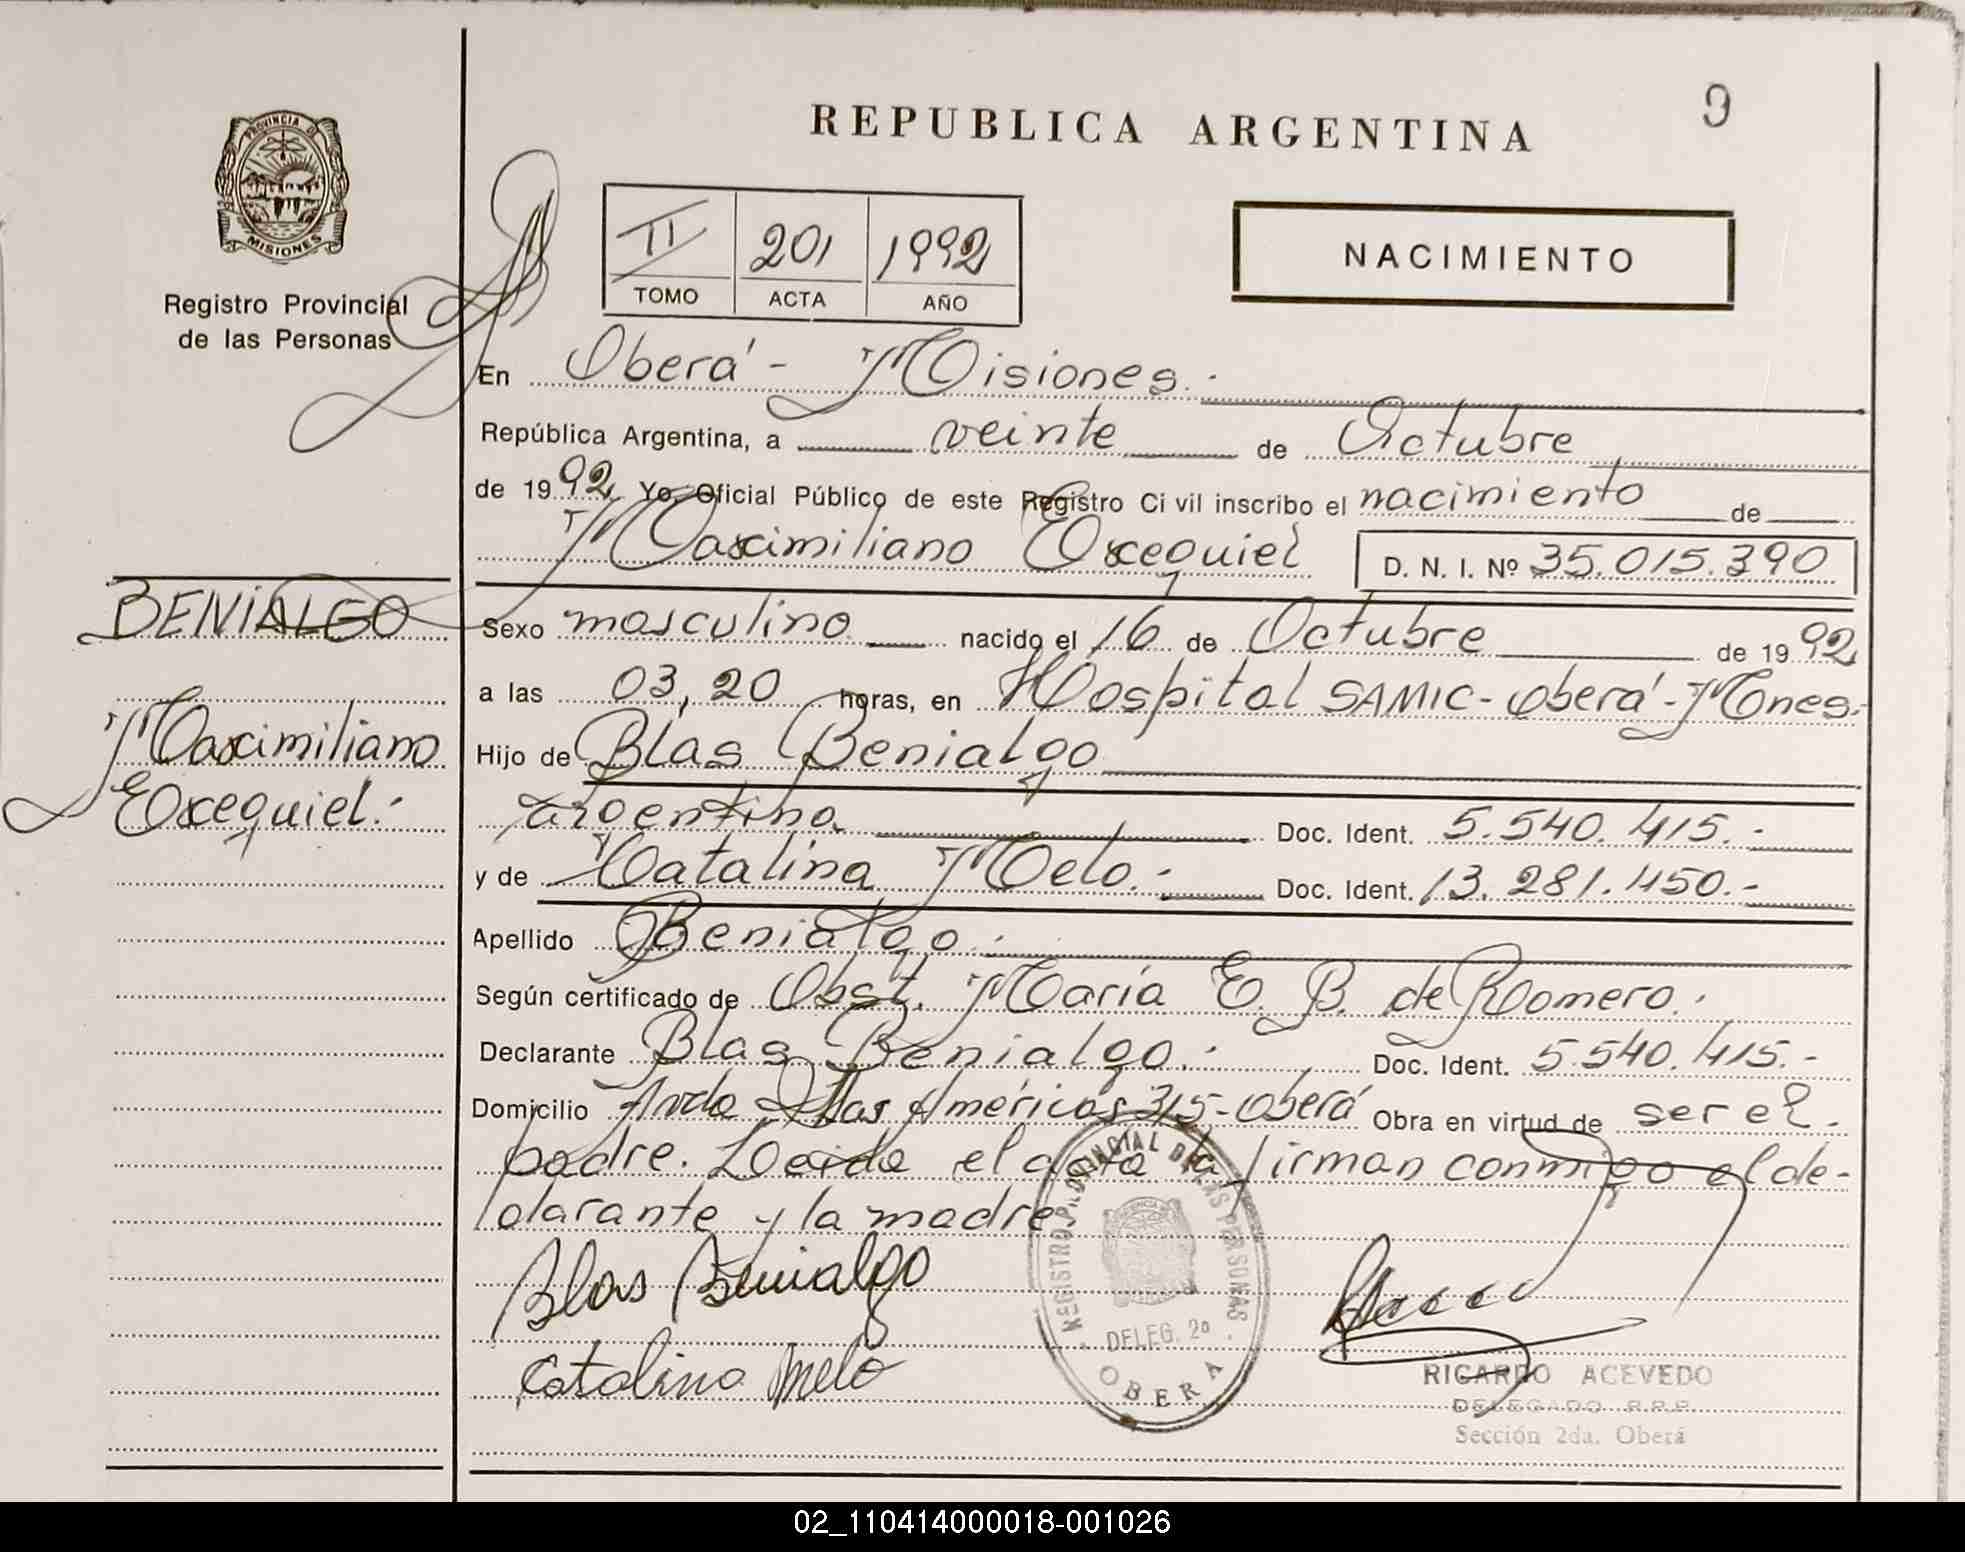 REPUBLICA ARGENTINA
9
PROVINCIA DE
MISIONES
Registro Provincial
de las Personas
II 201 1992
TOMO ACTA AÑO
NACIMIENTO
En Oberá - Misiones.-
República Argentina, a veinte de Octubre
de 1992 Yo, Oficial Público de este Registro Civil inscribo el nacimiento de
Maximiliano Exequiel D. N. I. Nº 35.015.390
BENIALGO
Maximiliano
Exequiel.-
Sexo masculino nacido el 16 de Octubre de 1992
a las 03,20 horas, en Hospital SAMIC - Oberá - Mnes.
Hijo de Blas Benialgo
argentina Doc. Ident. 5.540.415.-
y de Catalina Melo.- Doc. Ident. 13.281.450.-
Apellido Benialgo.-
Según certificado de Obst. María E. B. de Romero.
Declarante Blas Benialgo.- Doc. Ident. 5.540.415.-
Domicilio Avda Las Américas 315 - Oberá Obra en virtud de ser el
padre. Leida el acta la firman conmigo el de-
clarante y la madre.
Blas Benialgo
Catalina Melo
REGISTRO PROVINCIAL DE LAS PERSONAS
DELEG. 2ª
OBERA
RICARDO ACEVEDO
DELEGADO R.P.P.
Sección 2da. Oberá
02_110414000018-001026